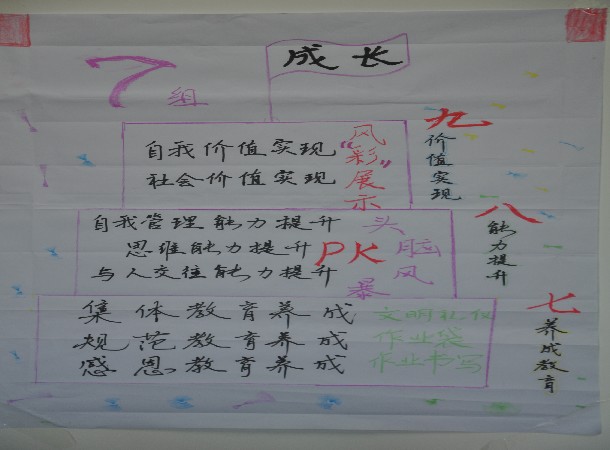 成长
7组
自我价值实现
社会价值实现
"风彩"展示
九
价值实现
自我管理能力提升
思维能力提升
与人交往能力提升
PK
头脑风暴
八
能力提升
集体教育养成
规范教育养成
感恩教育养成
文明礼仪
作业袋
作业书写
七
养成教育